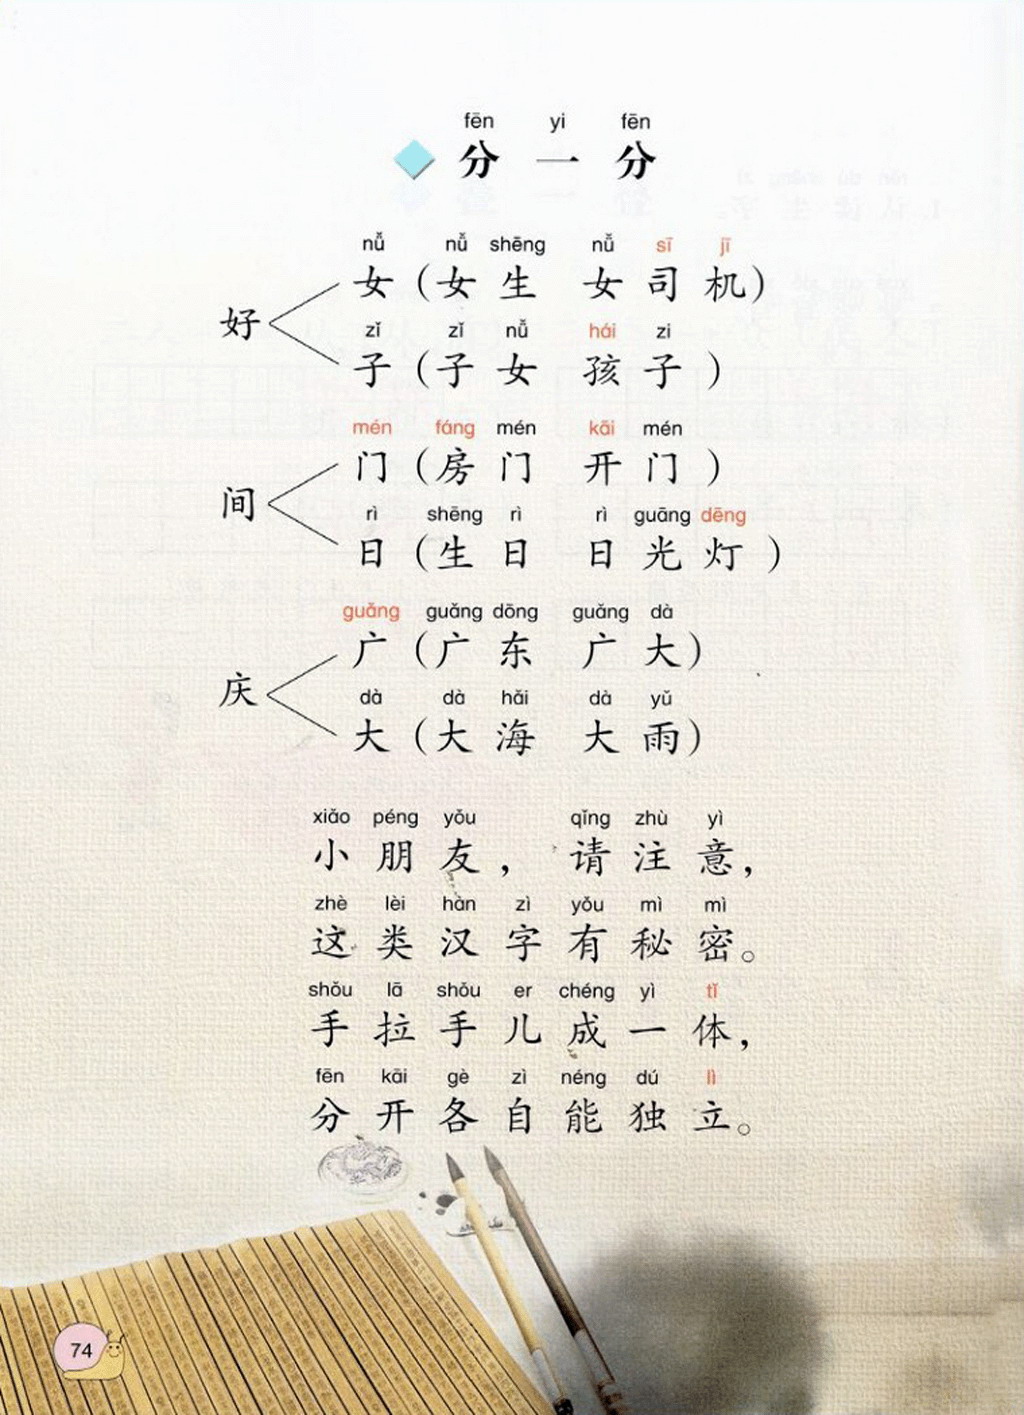 fēn yi fēn
分 一 分
nǚ nǚ shēng nǚ sī jī
女（女 生 女 司 机）
好
zǐ zǐ nǚ hái zi
子（子 女 孩 子）
mén fáng mén kāi mén
门（房 门 开 门）
间
rì shēng rì rì guāng dēng
日（生 日 日 光 灯）
guǎng guǎng dōng guǎng dà
广（广 东 广 大）
庆
dà dà hǎi dà yǔ
大（大 海 大 雨）
xiǎo péng yǒu qǐng zhù yì
小 朋 友， 请 注 意，
zhè lèi hàn zì yǒu mì mì
这 类 汉 字 有 秘 密。
shǒu lā shǒu er chéng yì tǐ
手 拉 手 儿 成 一 体，
fēn kāi gè zì néng dú lì
分 开 各 自 能 独 立。
74